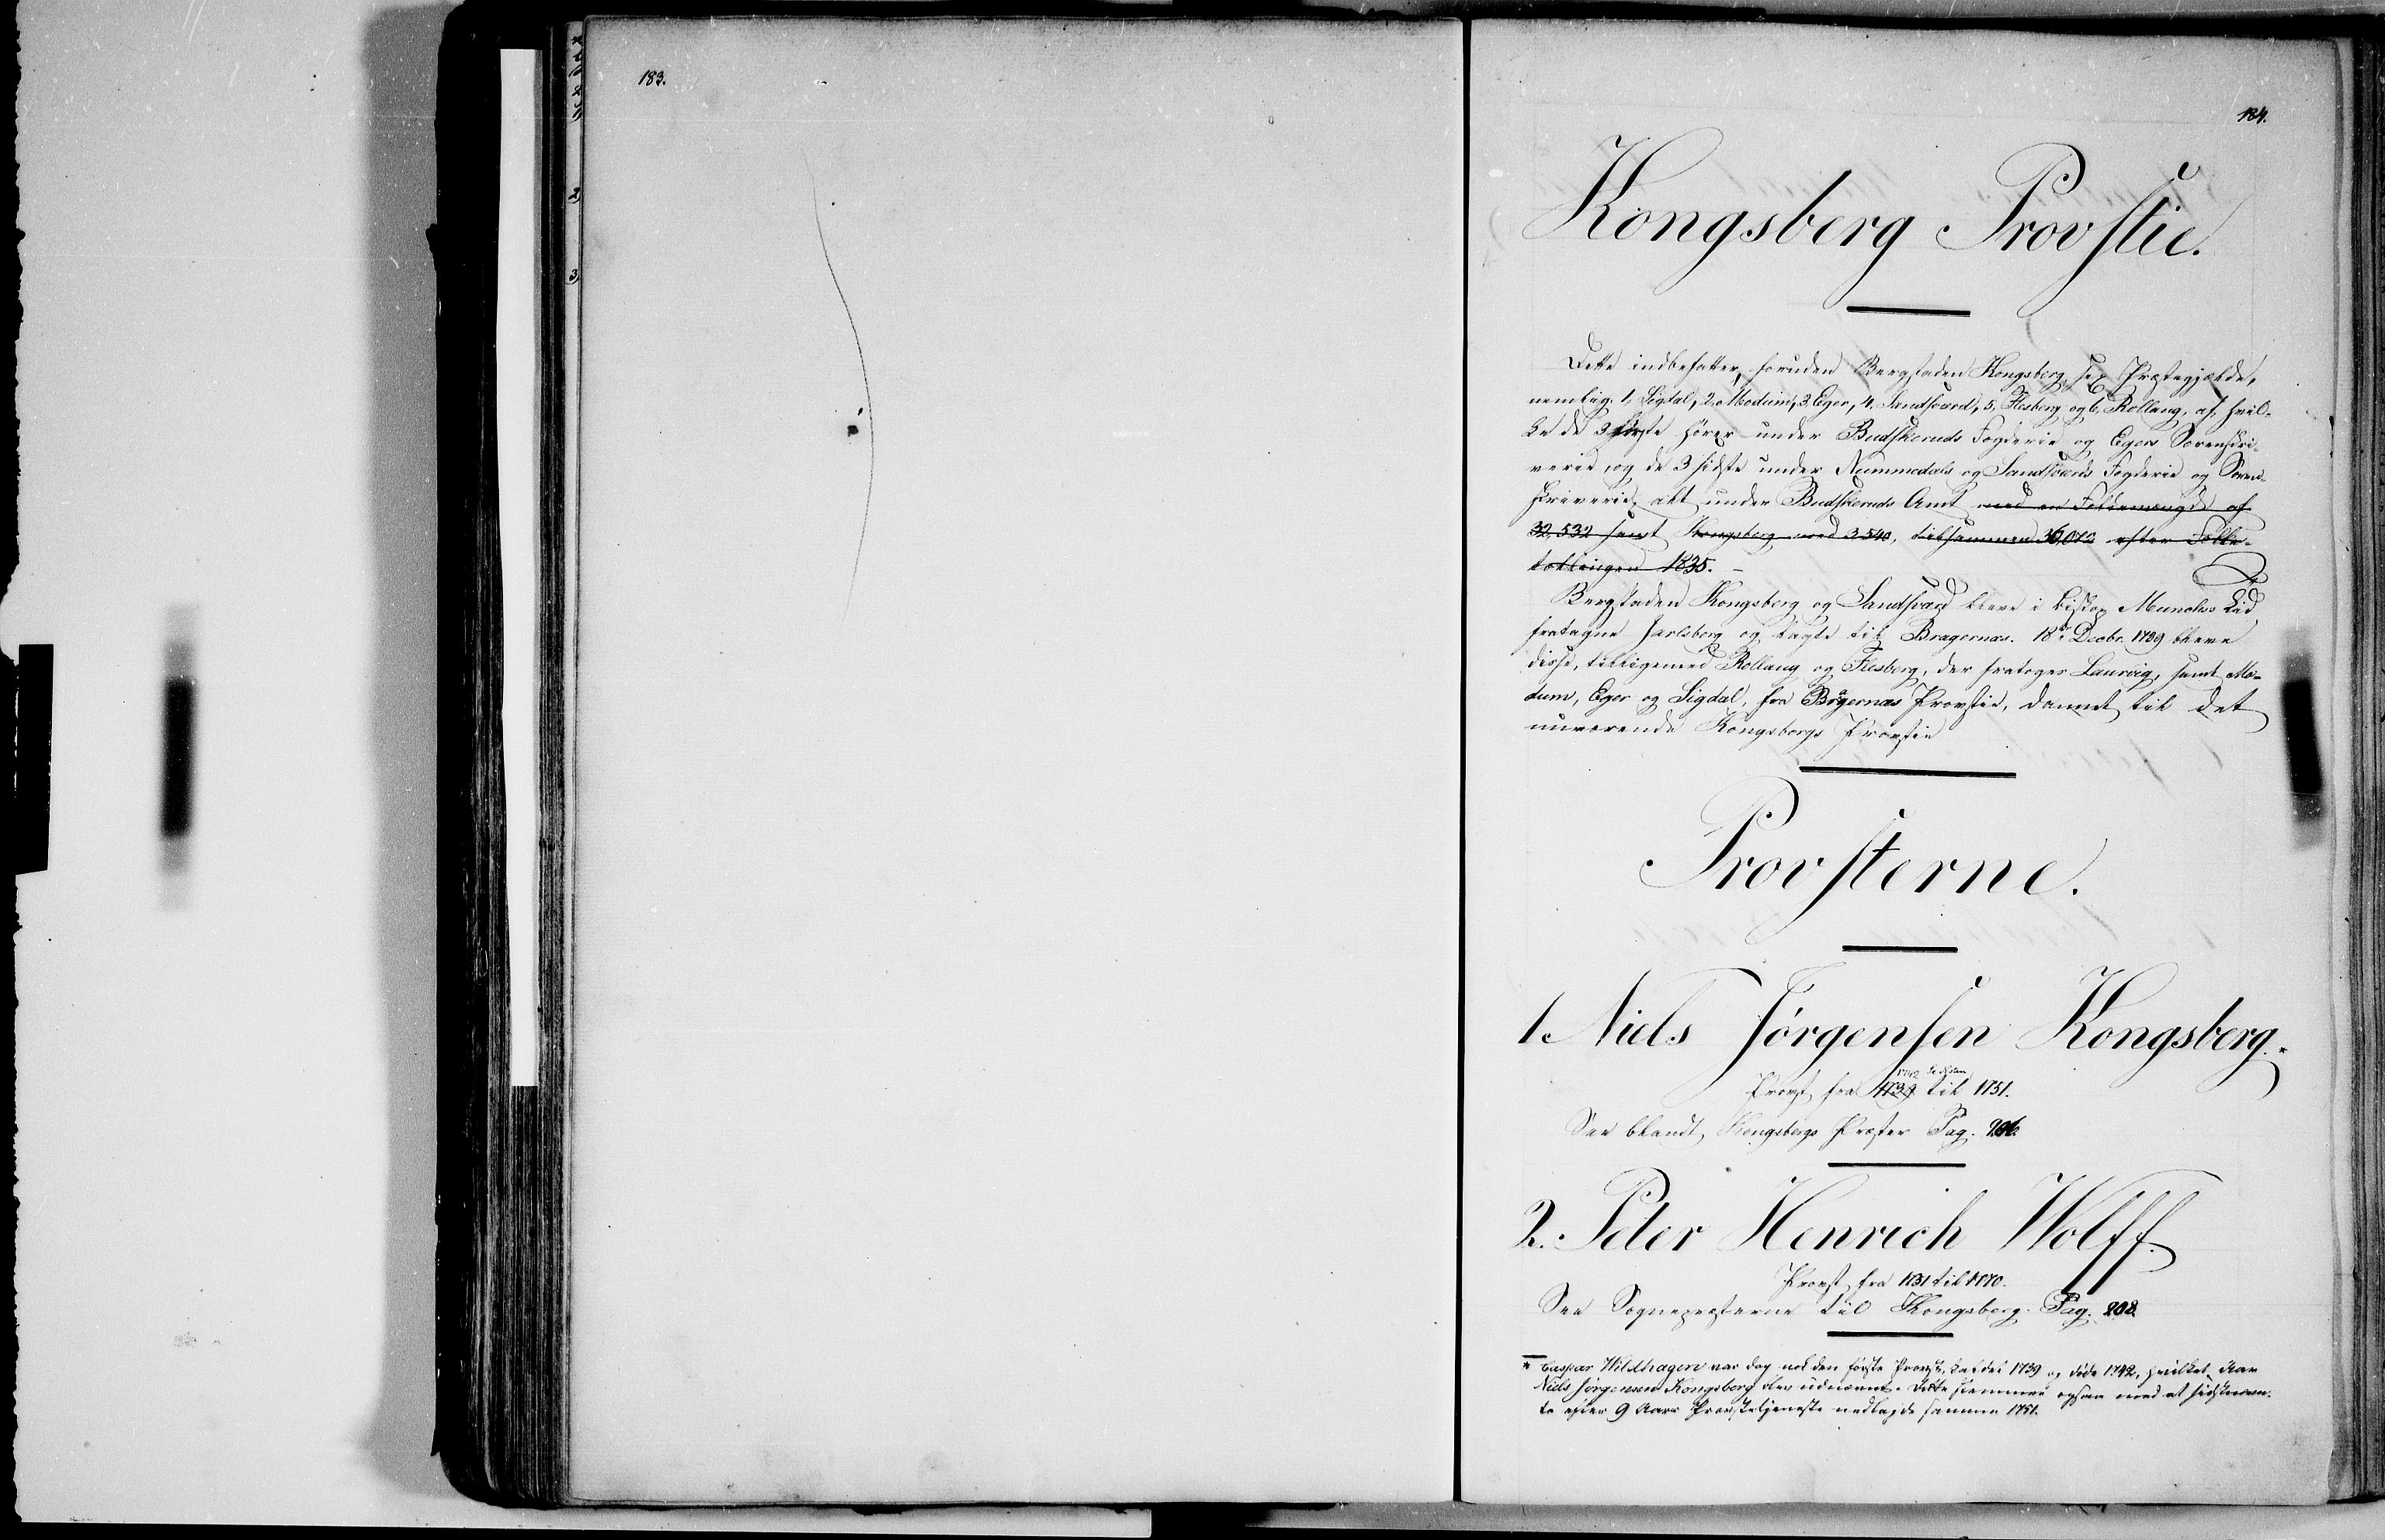 183.
184.
Kongsberg Provstie.
Dette indbefatter, foruden Bergstaden Kongsberg, sex Præstegjelde,
nemlig: 1, Sigdal, 2. Modum, 3. Eger, 4. Sandsværd, 5, Flesberg og 6, Rollaug, af hvil-
ke de 3 første hører under Budskeruds Fogderie og Egers Sorenskri-
verie, og de 3 sidste under Nummedals og Sandsværds Fogderie og Soren-
skriverie, alt under Budskeruds Amt med en Folkemængde af
32,532 samt Kongsberg med 3540, tilsammen 36,072 efter Folke-
tællingen 1835. –
Bergstaden Kongsberg og Sandsværd bleve i Biskop Munchs Tid
fratagne Jarlsberg og lagte til Bragernæs. 18de Decbr. 1739 bleve
disse, tilligemed Rollaug og Flesberg, der fratoges Laurvig, samt Mo-
dum, Eger og Sigdal, fra Bragernæs Provstie, dannet til det
nuværende Kongsbergs Provstie
Provsterne.
1. Niels Jörgensen Kongsberg.*
1742
Provst fra 1739 til 1751.
See blandt Kongsbergs Præster Pag. 206.
2. Peter Henrich Wolff.
Provst fra 1751 til 1770.
See Sognepræsterne til Kongsberg Pag. 208.
* Caspar Wildhagen var dog nok den første Provst, kaldet 1739 og døde 1742, hvilket Aar
Niels Jörgensen Kongsberg blev udnævnt. Dette stemmer ogsaa med at sidstnævn-
te efter 9 Aars Provstetjeneste nedlagde samme 1751.